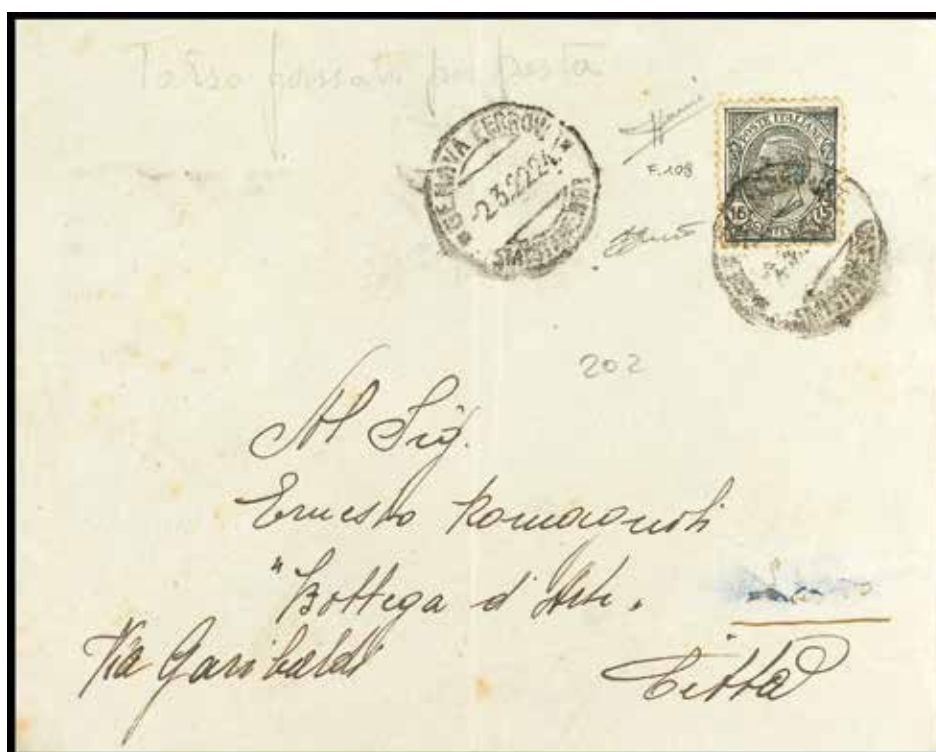 Falso passato per posta
GENOVA FERROVIA
-2.3.22 24
F. 108
POSTE ITALIANE
15 15
202
Al Sig.
Ernesto Romagnoli
"Bottega d'Arte"
Via Garibaldi
Città